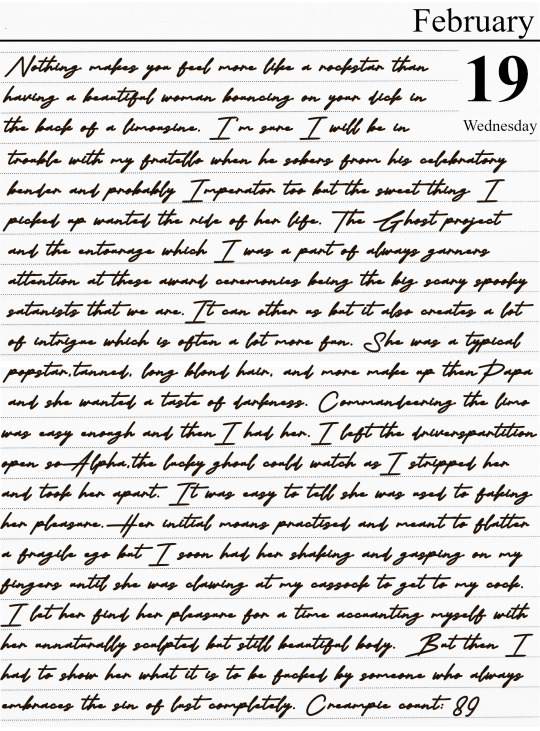 February
19
Wednesday
Nothing makes you feel more like a rockstar than
having a beautiful woman bouncing on your dick in
the back of a limousine. I'm sure I will be in
trouble with my fratello when he sobers from his celebratory
bender and probably Imperator too but the sweet thing I
picked up wanted the ride of her life. The Ghost project
and the entourage which I was a part of always garners
attention at these award ceremonies being the big scary spooky
satanists that we are. It can other us but it also creates a lot
of intrigue which is often a lot more fun. She was a typical
popstar,tanned, long blond hair, and more make up then Papa
and she wanted a taste of darkness. Commandeering the limo
was easy enough and then I had her. I left the driverspartition
open so Alpha,the lucky ghoul could watch as I stripped her
and took her apart. It was easy to tell she was used to faking
her pleasure. Her initial moans practised and meant to flatter
a fragile ego but I soon had her shaking and gasping on my
fingers until she was clawing at my cassock to get to my cock.
I let her find her pleasure for a time accuanting myself with
her unnaturally sculpted but still beautiful body. But then I
had to show her what it is to be fucked by someone who always
embraces the sin of lust completely. Creampie count: 89